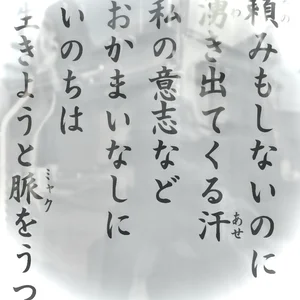 頼みもしないのに
湧き出てくる汗
私の意志など
おかまいなしに
いのちは
生きようと脈をうつ